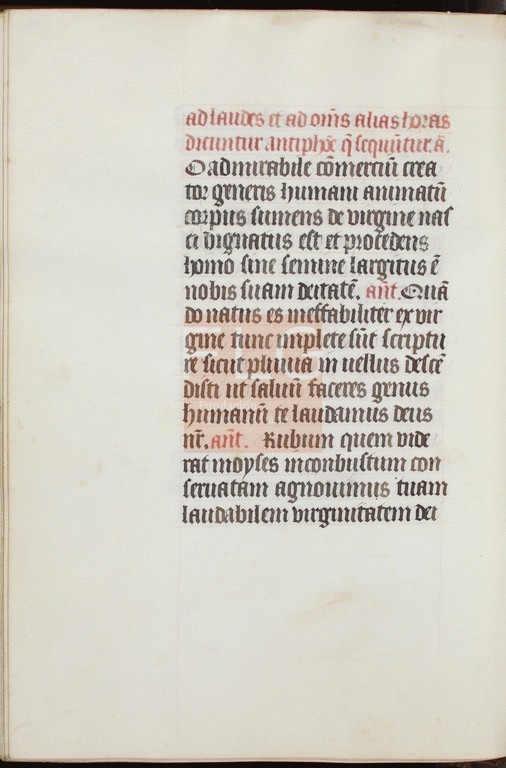 ad laudes et ad om̄s alias horas
dicuntur antiphōe q̄ sequūtur. ā.
O admirabile cōmerciū crea
tor generis humani animatū
corpus sumens de virgine nas
ci dignatus est et procedens
homo sine semine largitus ē
nobis suam deitatē. añt. Quā
do natus es ineffabiliter ex vir
gine tunc implete sūt scriptu
re sicut pluuia in uellus descē
disti ut saluū faceres genus
humanū te laudamus deus
nr̄. añt. Rubum quem vide
rat moyses inconbustum con
seruatam agnouimus tuam
laudabilem virginitatem dei